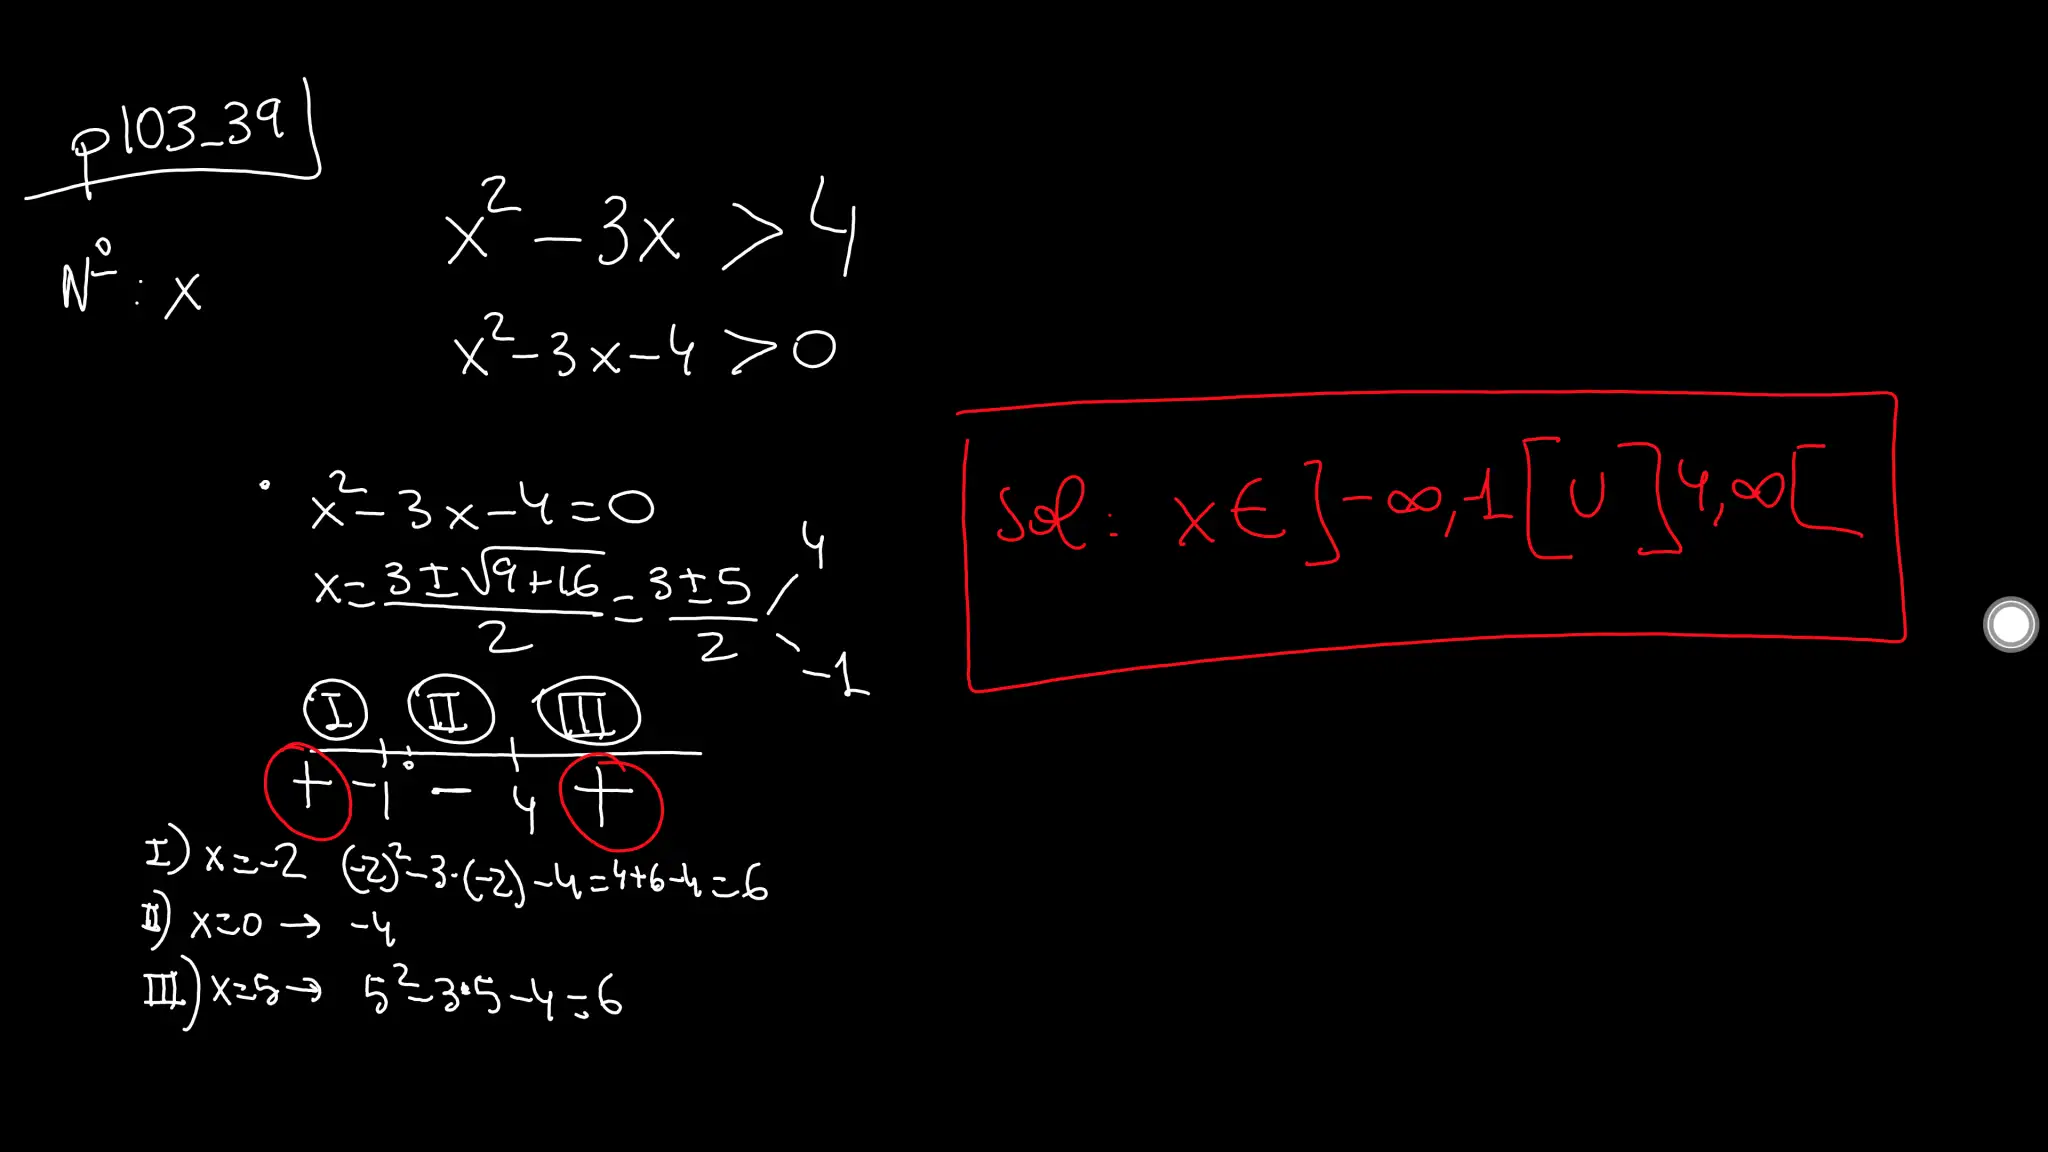 p103_39
Nº: x
x² - 3x > 4
x² - 3x - 4 > 0
• x² - 3x - 4 = 0
x = (3 ± √(9+16))/2 = (3 ± 5)/2
4
-1
I II III
+ -1 0 - 4 +
I) x = -2 (-2)² - 3·(-2) - 4 = 4 + 6 - 4 = 6
II) x = 0 → -4
III) x = 5 → 5² - 3·5 - 4 = 6
Sol: x ∈ ]-∞, -1[ ∪ ]4, ∞[